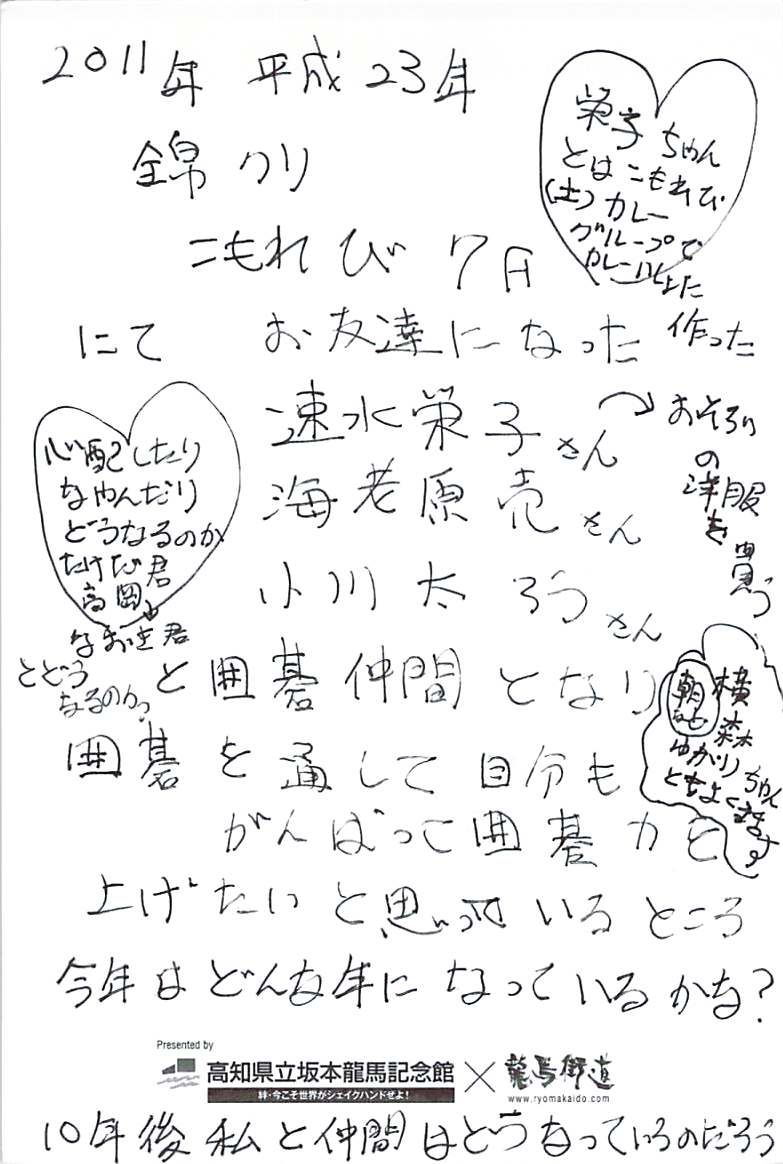 2011年 平成23年
錦クリ
こもれび 7月
にて お友達になった
速水栄子さん
海老原売さん
小川太ろうさん
と囲碁仲間となり
囲碁を通して自分も
がんばって囲碁力を
上げたいと思っているところ
今年はどんな年になっているかな?
栄子ちゃん
とはこもれび
(土)カレー
グループで
カレー
作った
おそろい
の
洋服
を
買う
心配したり
なやんだり
どうなるのか
たけだ君
高岡
なおき君
とどう
なるのか?
朝も
横森
ゆかりちゃん
ともよく
Presented by
高知県立坂本龍馬記念館 × 龍馬街道
絆・今こそ世界がシェイクハンドせよ!
www.ryomakaido.com
10年後私と仲間はどうなっているのだろう